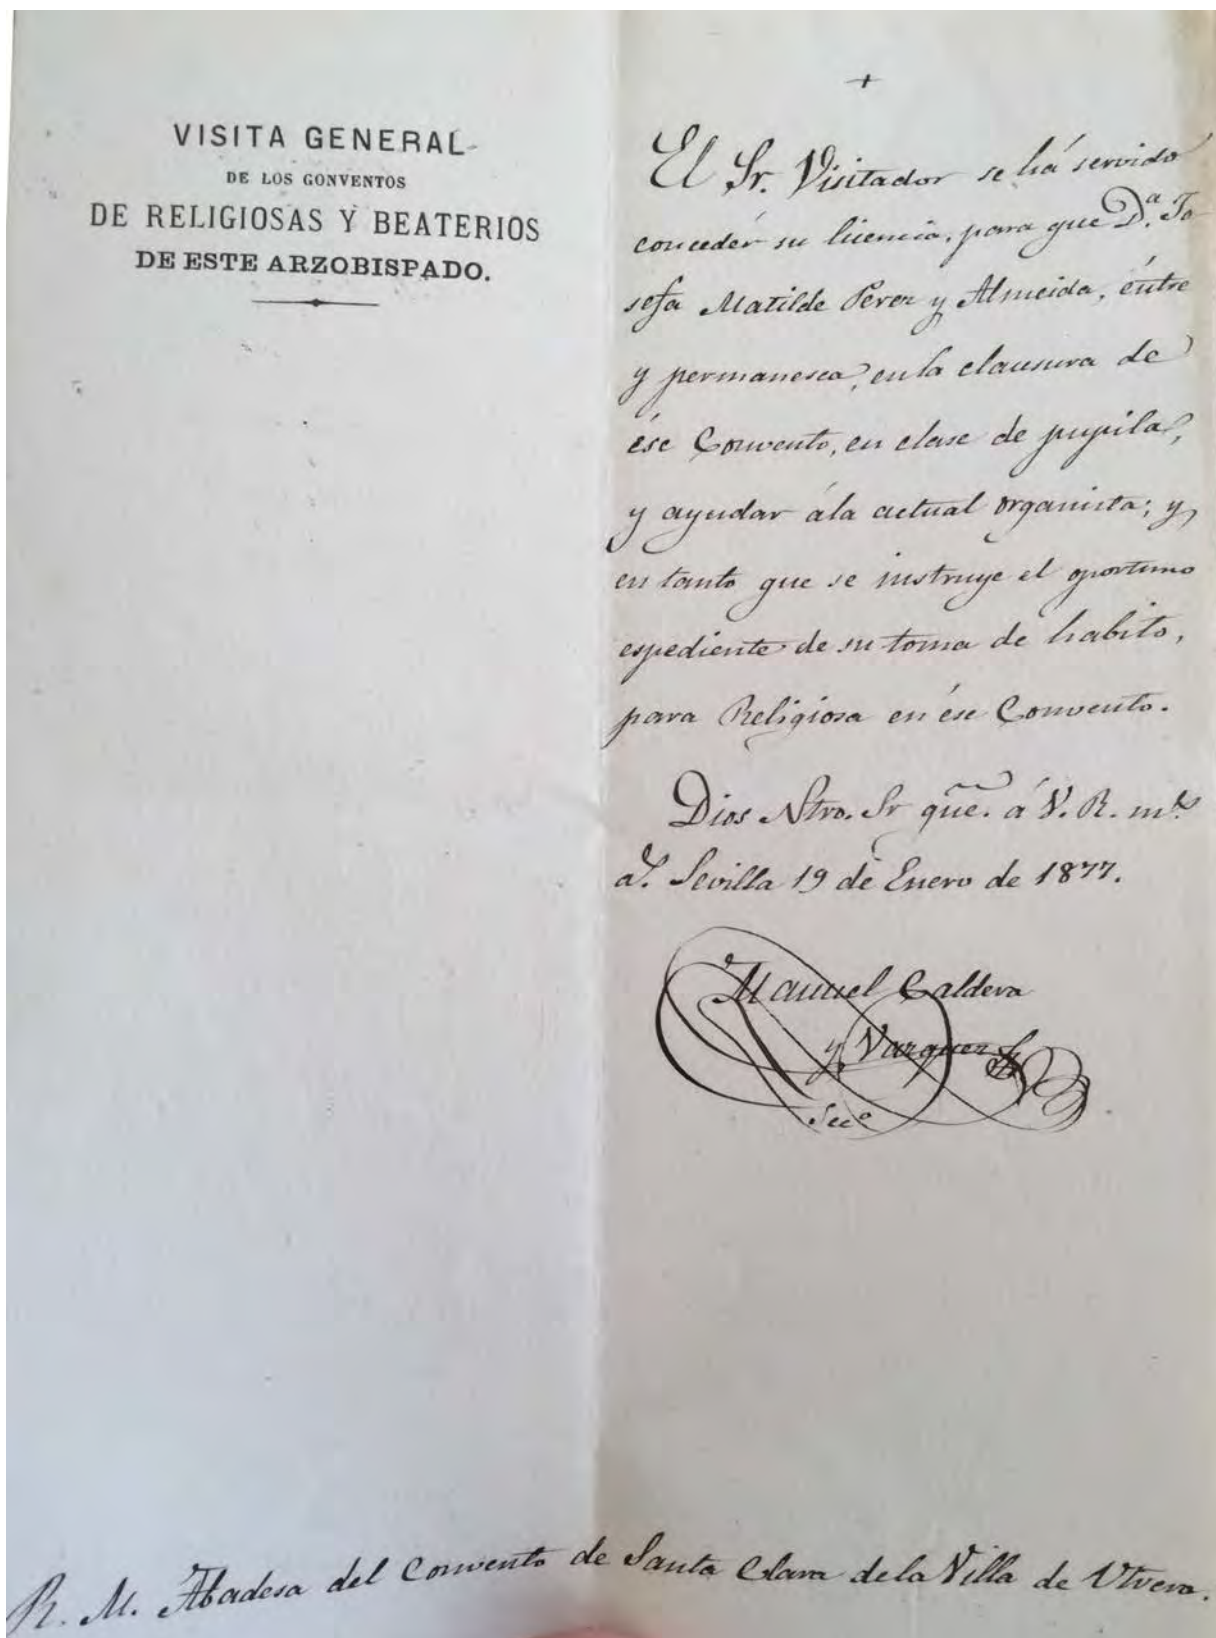 VISITA GENERAL
DE LOS CONVENTOS
DE RELIGIOSAS Y BEATERIOS
DE ESTE ARZOBISPADO.
+
El Sr. Visitador se há servido
concedér su licencia, para que D.ª Jo-
sefa Matilde Perez y Almeida, éntre
y permanesca, en la clausura de
ése Convento, en clase de pupila,
y ayudar ála actual organista; y
en tanto que se instruye el oportuno
espediente de su toma de habito,
para Religiosa en ése Convento.
Dios Ntro. Sr gũe. á V. R. m.s
a.s Sevilla 19 de Enero de 1877.
Manuel Caldera
y Varquez
Sec.º
R. M. Abadesa del Convento de Santa Clara de la Villa de Utrera.